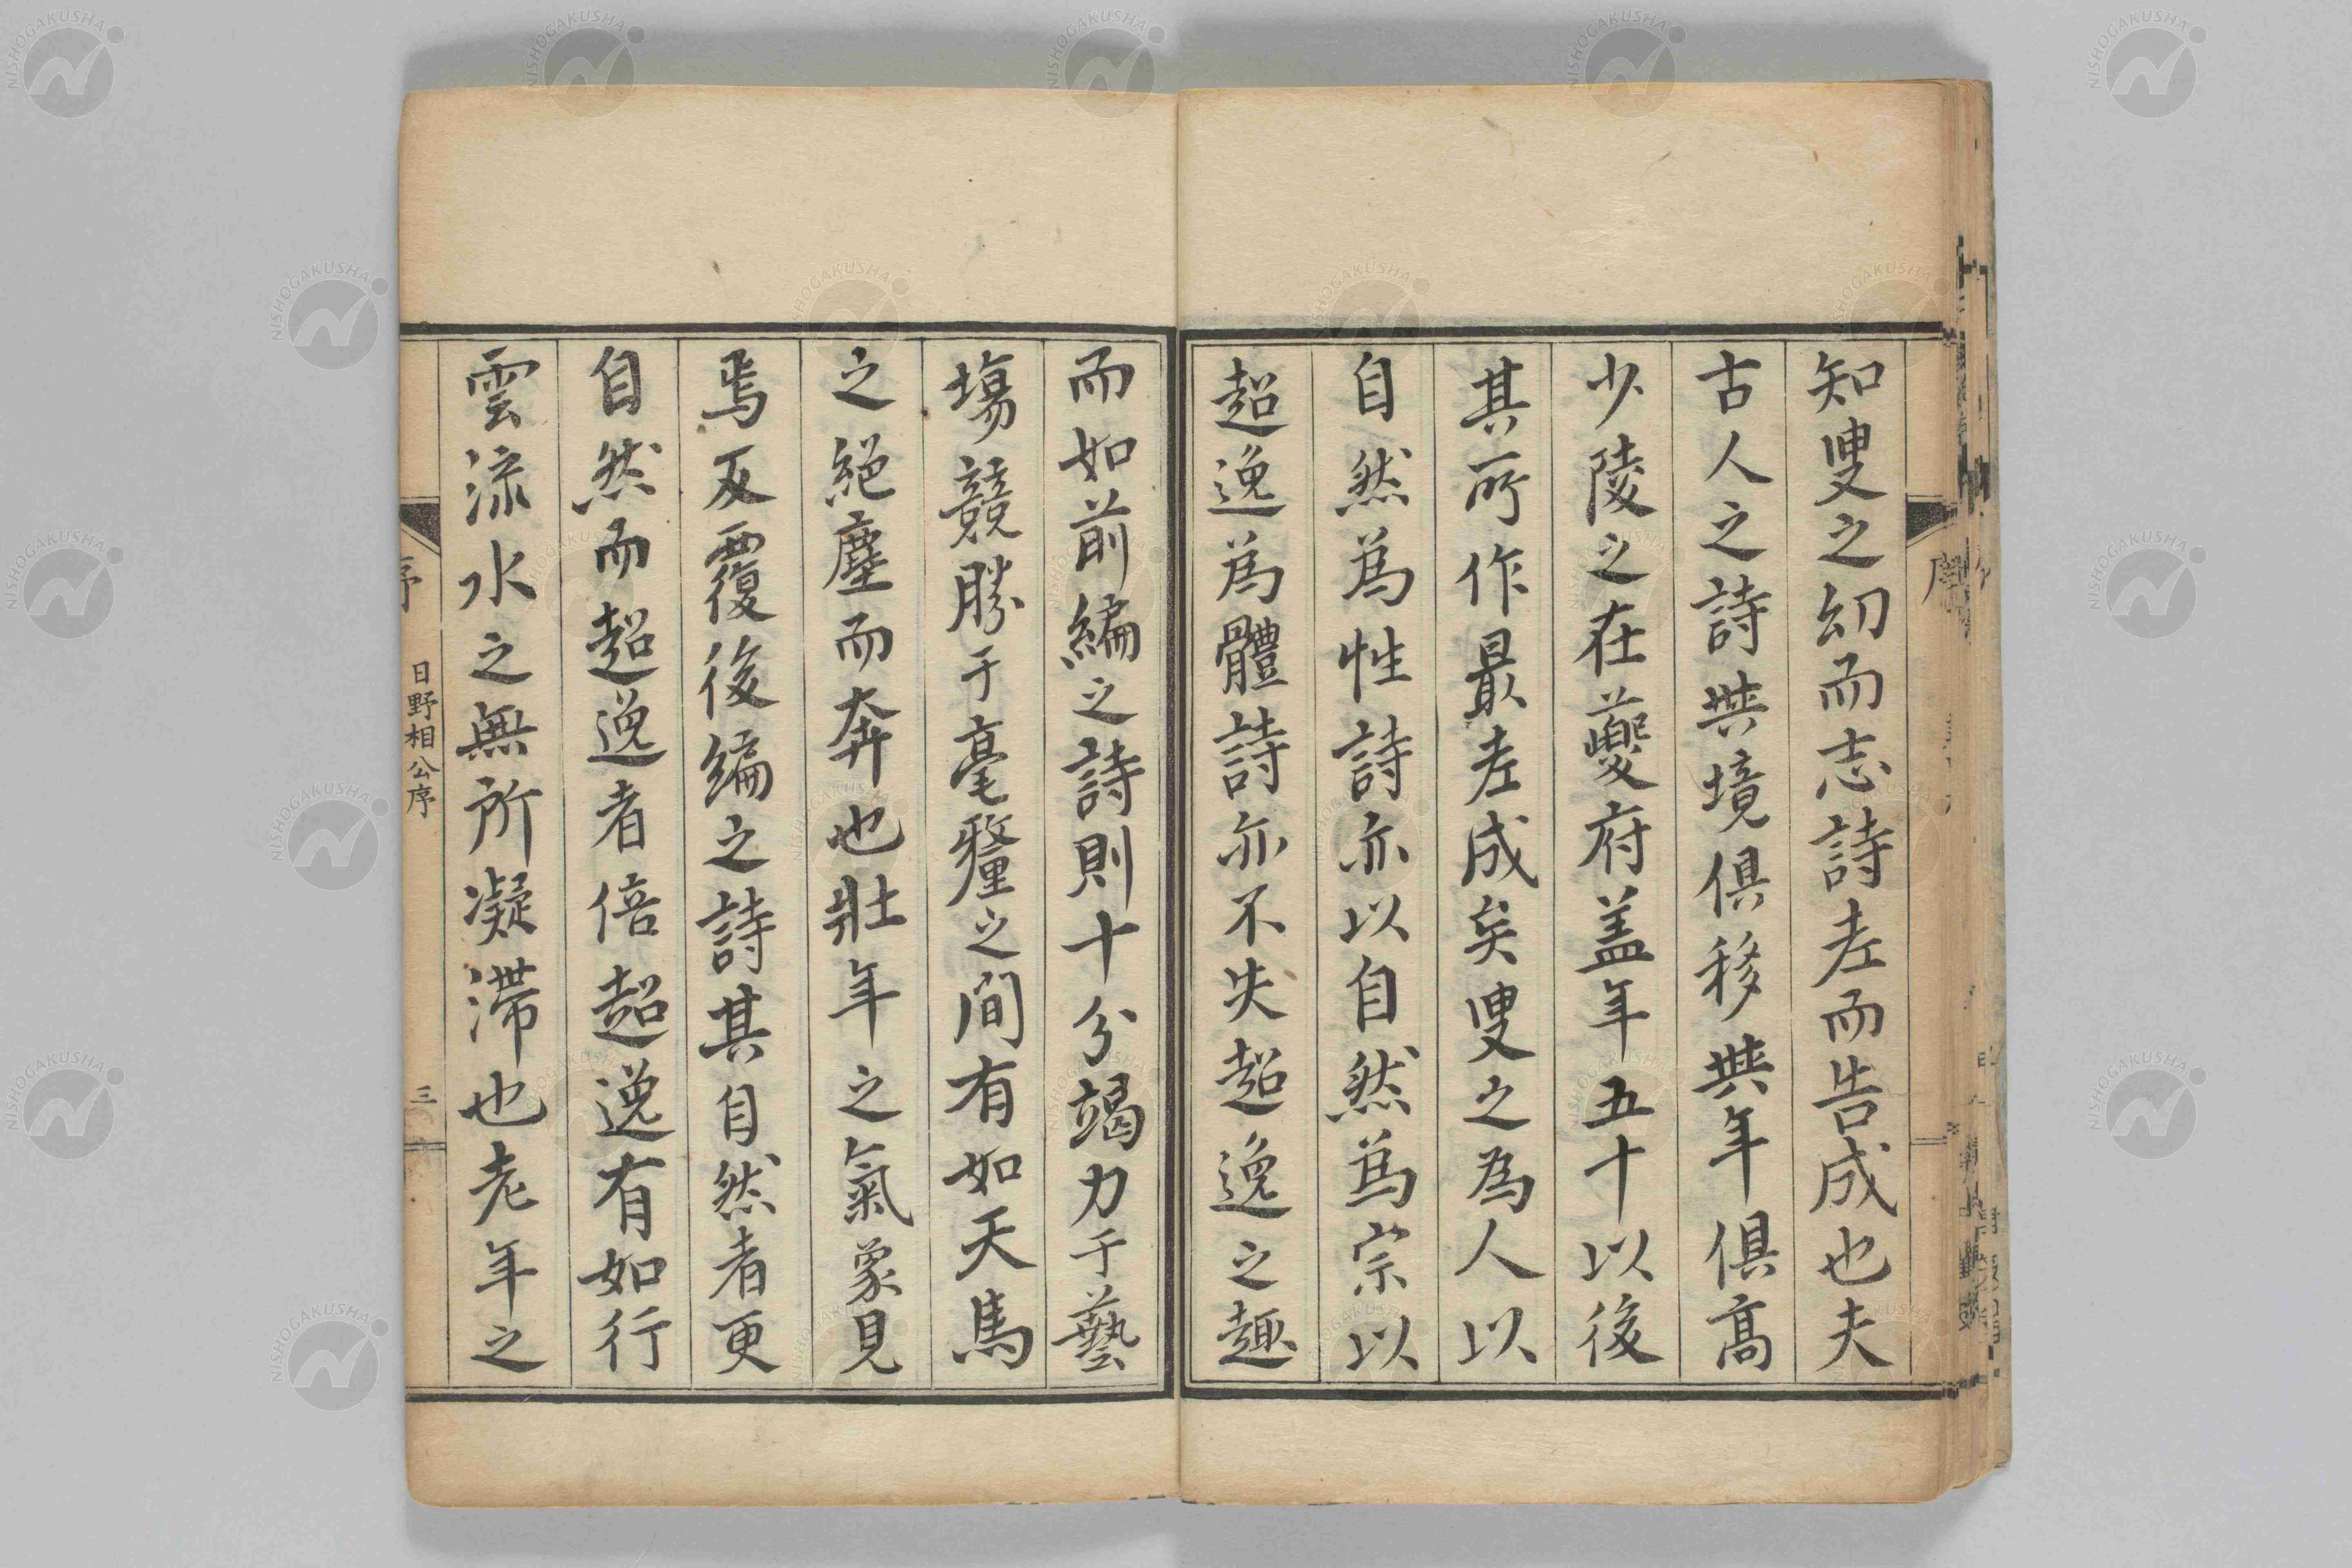 知叟之幼而志詩老而告成也夫
古人之詩與境俱移與年俱高
少陵之在夔府盖年五十以後
其所作最老成矣叟之為人以
自然為性詩亦以自然為宗以
超逸為體詩亦不失超逸之趣
而如前編之詩則十分竭力于藝
塲競勝于毫釐之間有如天馬
之絕塵而奔也壯年之氣象見
焉反覆後編之詩其自然者更
自然而超逸者倍超逸有如行
雲流水之無所凝滯也老年之
序
日野相公序
三
NISHOGAKUSHA